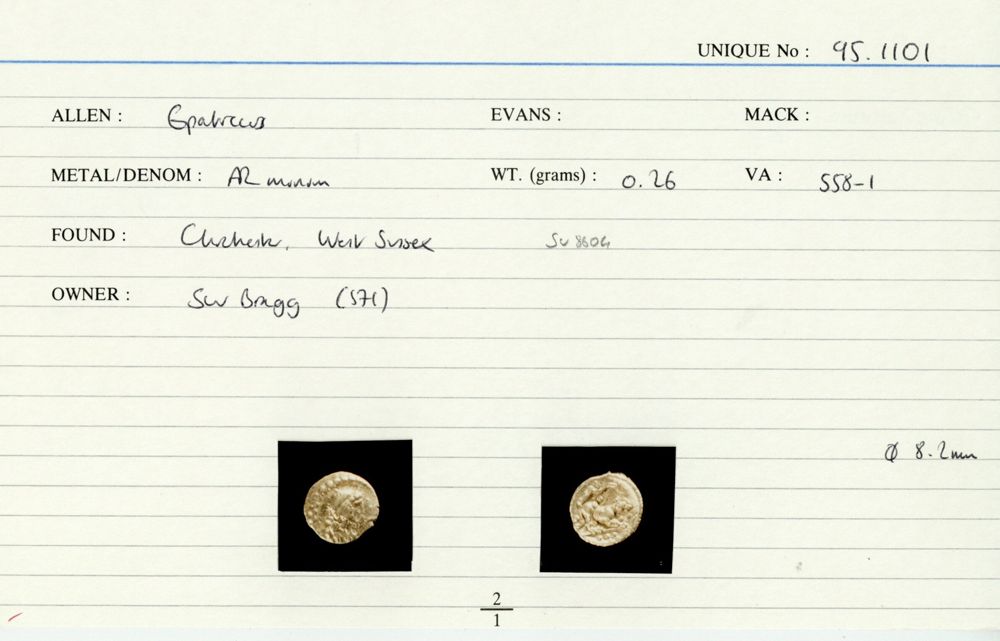 UNIQUE No : 95.1101
ALLEN : Epaticcus EVANS : MACK :
METAL/DENOM : AR minim WT. (grams) : 0.26 VA : 558-1
FOUND : Chichester, West Sussex SU 8604
OWNER : SW Bragg (571)
Ø 8.2mm
2
1